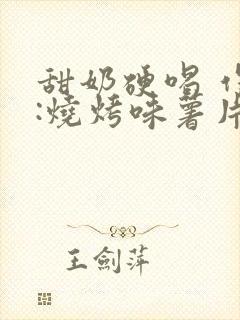 甜奶硬唱
:燒烤味薯片
王劍萍